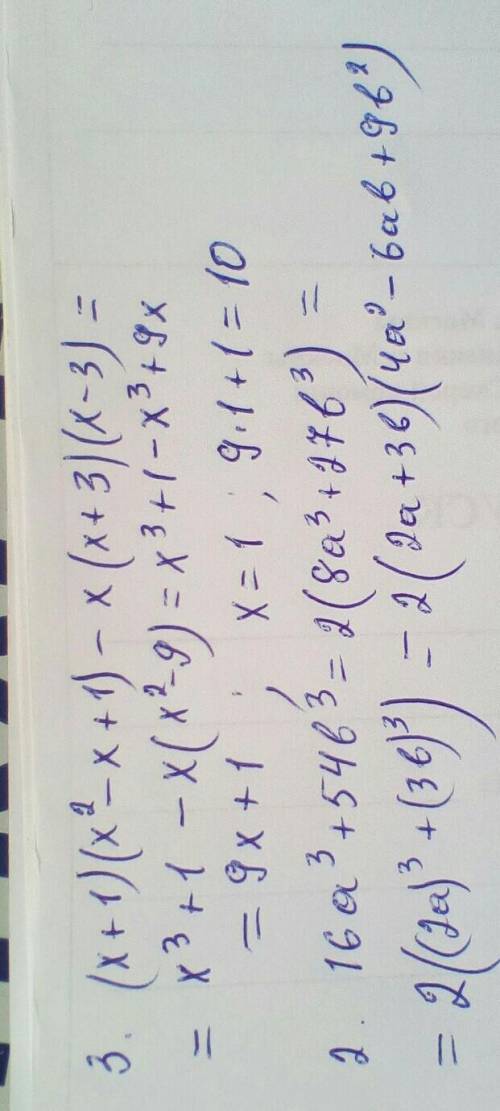 3. (x+1)(x²-x+1)-x(x+3)(x-3)=
= x³+1-x(x²-9)=x³+1-x³+9x
= 9x+1 ; x=1 ; 9·1+1=10
2. 16a³+54b³=2(8a³+27b³)=
=2((2a)³+(3b)³)=2(2a+3b)(4a²-6ab+9b²)